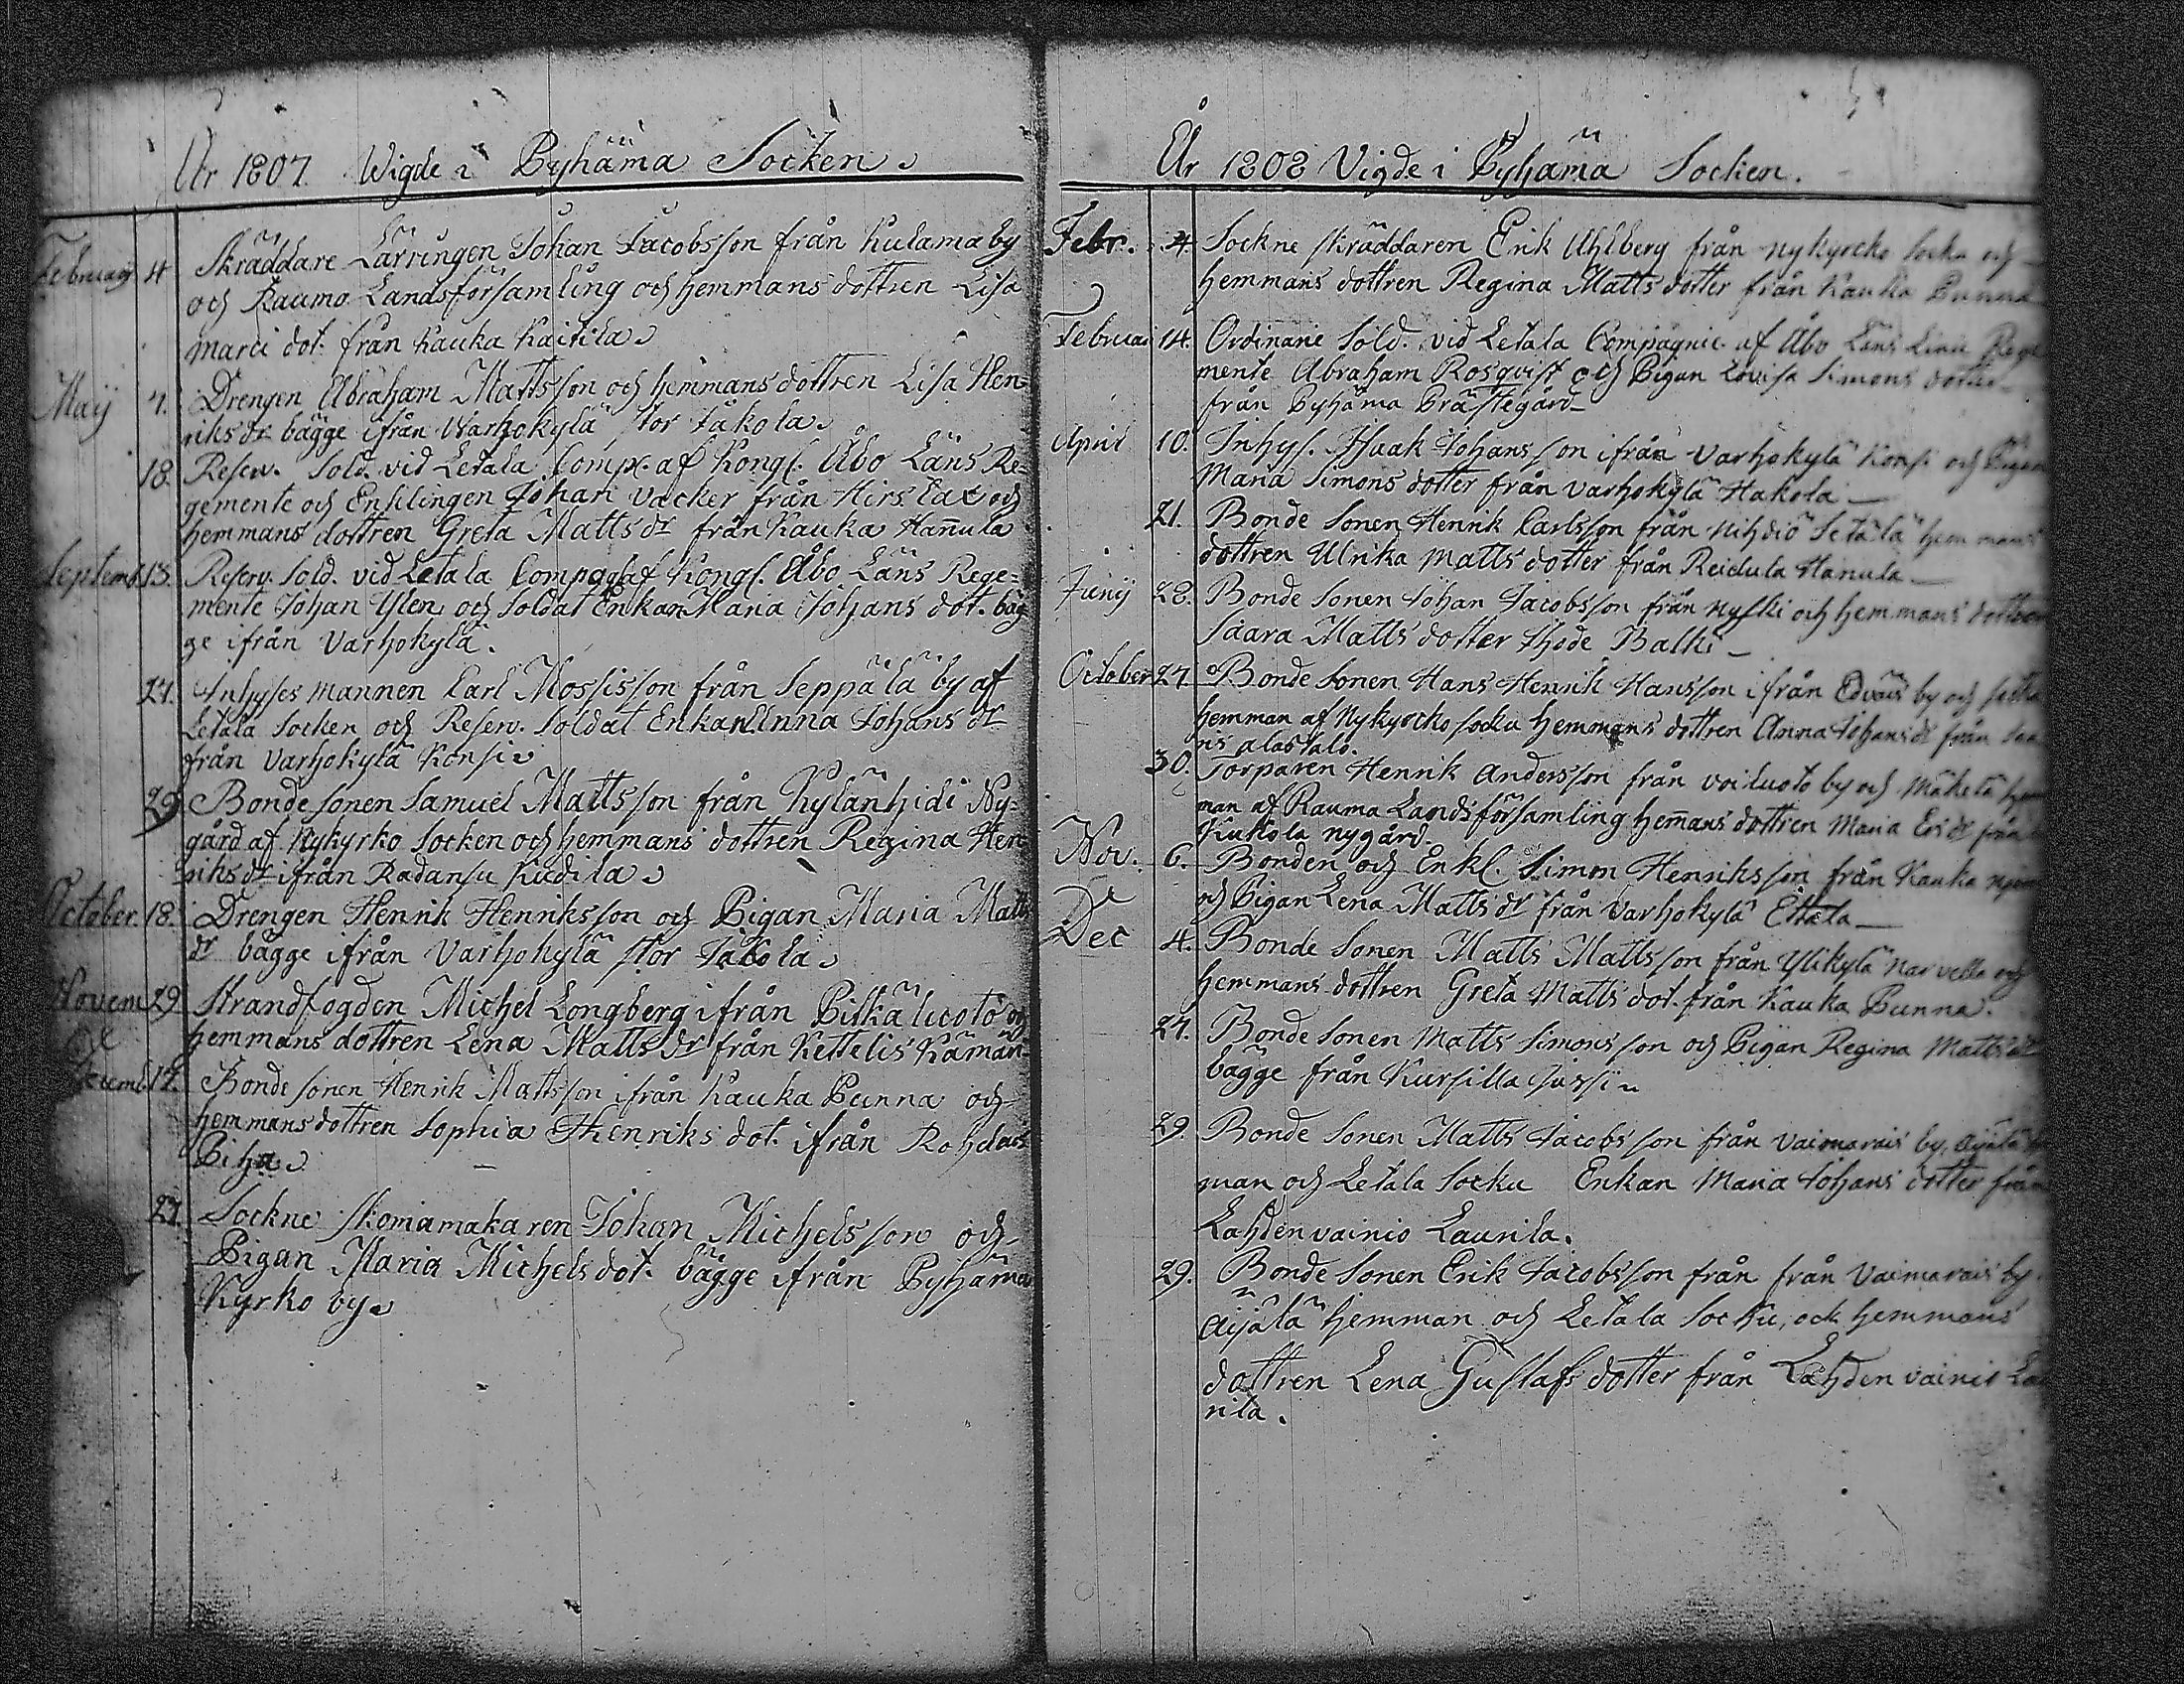 År 1807. Wigde i Byhäma Socken.
Februarij 4 Skräddare Lärlingen Johan Jacobsson från Kulamaby
och Raumo Landsförsamling och hemmans dottren Lisa
Marci dot. från Kauka Kaitila.
Maij 7. Drengen Abraham Mattsson och hemmans dottren Lisa Hen-
riks dr bägge ifrån Warhokylä stor Jakola.
18. Reserv. Sold. vid Letala Comp. af Kongl. Åbo Läns Re-
gemente och Enklingen Johan Vacker från Hirslax och
hemmans dottren Greta Matts dr från Kauka Hañula
Septemb. 13. Reserv. Sold. vid Letala Compag. af Kongl. Åbo Läns Rege=
mente Johan Ylen och Soldat Enkan Maria Johans dot. bäg
ge ifrån Varhokylä.
27. Inhyses mannen Carl Mossisson från Seppälä by af
Letala Socken och Reserv. Soldat Enkan Anna Johans dr
från Varhokylä Konsi.
29 Bonde sonen Samuel Mattsson från Kylänhidi Ny=
gård af Nykyrko Socken och hemmans dottren Regina Hen
riks dr ifrån Radansu Kudila.
October. 18. Drengen Henrik Henriksson och Pigan Maria Matts
dr bägge ifrån Varhokylä stor Jakola.
Novem 29 Strandfogden Michel Longberg ifrån Pitkäluoto och
hemmans dottren Lena Matts dr från Kettelis Kämän
Decemb. 17. Bonde sonen Henrik Mattsson ifrån Kauka Bunna och
hemmans dottren Sophia Henriks dot. ifrån Rohdais
Piha.
27. Sockne skomamakaren Johan Michelsson och
Pigan Maria Michels dot. bägge ifrån Pyhämä
Kyrko by.
År 1808 Vigde i Pyhämä Socken.
Febr. 4 Sockne skräddaren Erik Uhlberg från Nykyrcko Socku och
hemmans dottren Regina Matts dotter från Kauka Bunna
Februari 14. Ordinarie Sold. vid Letala Compagnie af Åbo Läns Linie Rege
mente Abraham Rosqvist och Pigan Lovisa Simons dotter
från Pyhäma Prästegård
April 10. Inhys. Isaak Johansson ifrån Varhokylä Konsi och Pigan
Maria Simons dotter från Varhokylä Hakola
21. Bonde Sonen Henrik Carlsson från Nihdiö Setälä hemmans
dottren Ulrika Matts dotter från Reidula Hanula
Junij 28. Bonde Sonen Johan Jacobsson från Nyski och hemmans dottren
Saara Matts dotter Balki
October 27 Bonde Sonen Hans Henrik Hansson ifrån Edväis by och
hemman af Nykyrcko socku hemmans dottren Anna Johans dr från
alastalo.
30. Torparen Henrik Andersson från Voiluoto by och Mäkelä hem
man af Rauma Landsförsamling hemans dottren Maria Ers dr från
Kukola nygård
Nov. 6. Bonden och Enkl. Simon Henriksson från Kauka
och Pigan Lena Matts dr från Varhokylä Ettala
Dec 4. Bonde Sonen Matts Mattsson från Ylikylä Narvella och
hemmans dottren Greta Matts dot. från Kauka Bunna.
27. Bonde Sonen Matts Simonsson och Pigan Regina Matts dr
bägge från Kursilla Jussi
29. Bonde Sonen Matts Jacobsson från Vaimarais by, Äijälä
man och Letala Socku Enkan Maria Johans dotter från
Lahdenvainio Launila.
29. Bonde Sonen Erik Jacobsson från från Vaimarais by
Äijälä hemman och Letala Socku, och hemmans
dottren Lena Gustafs dotter från Lahdenvainio La
nila.